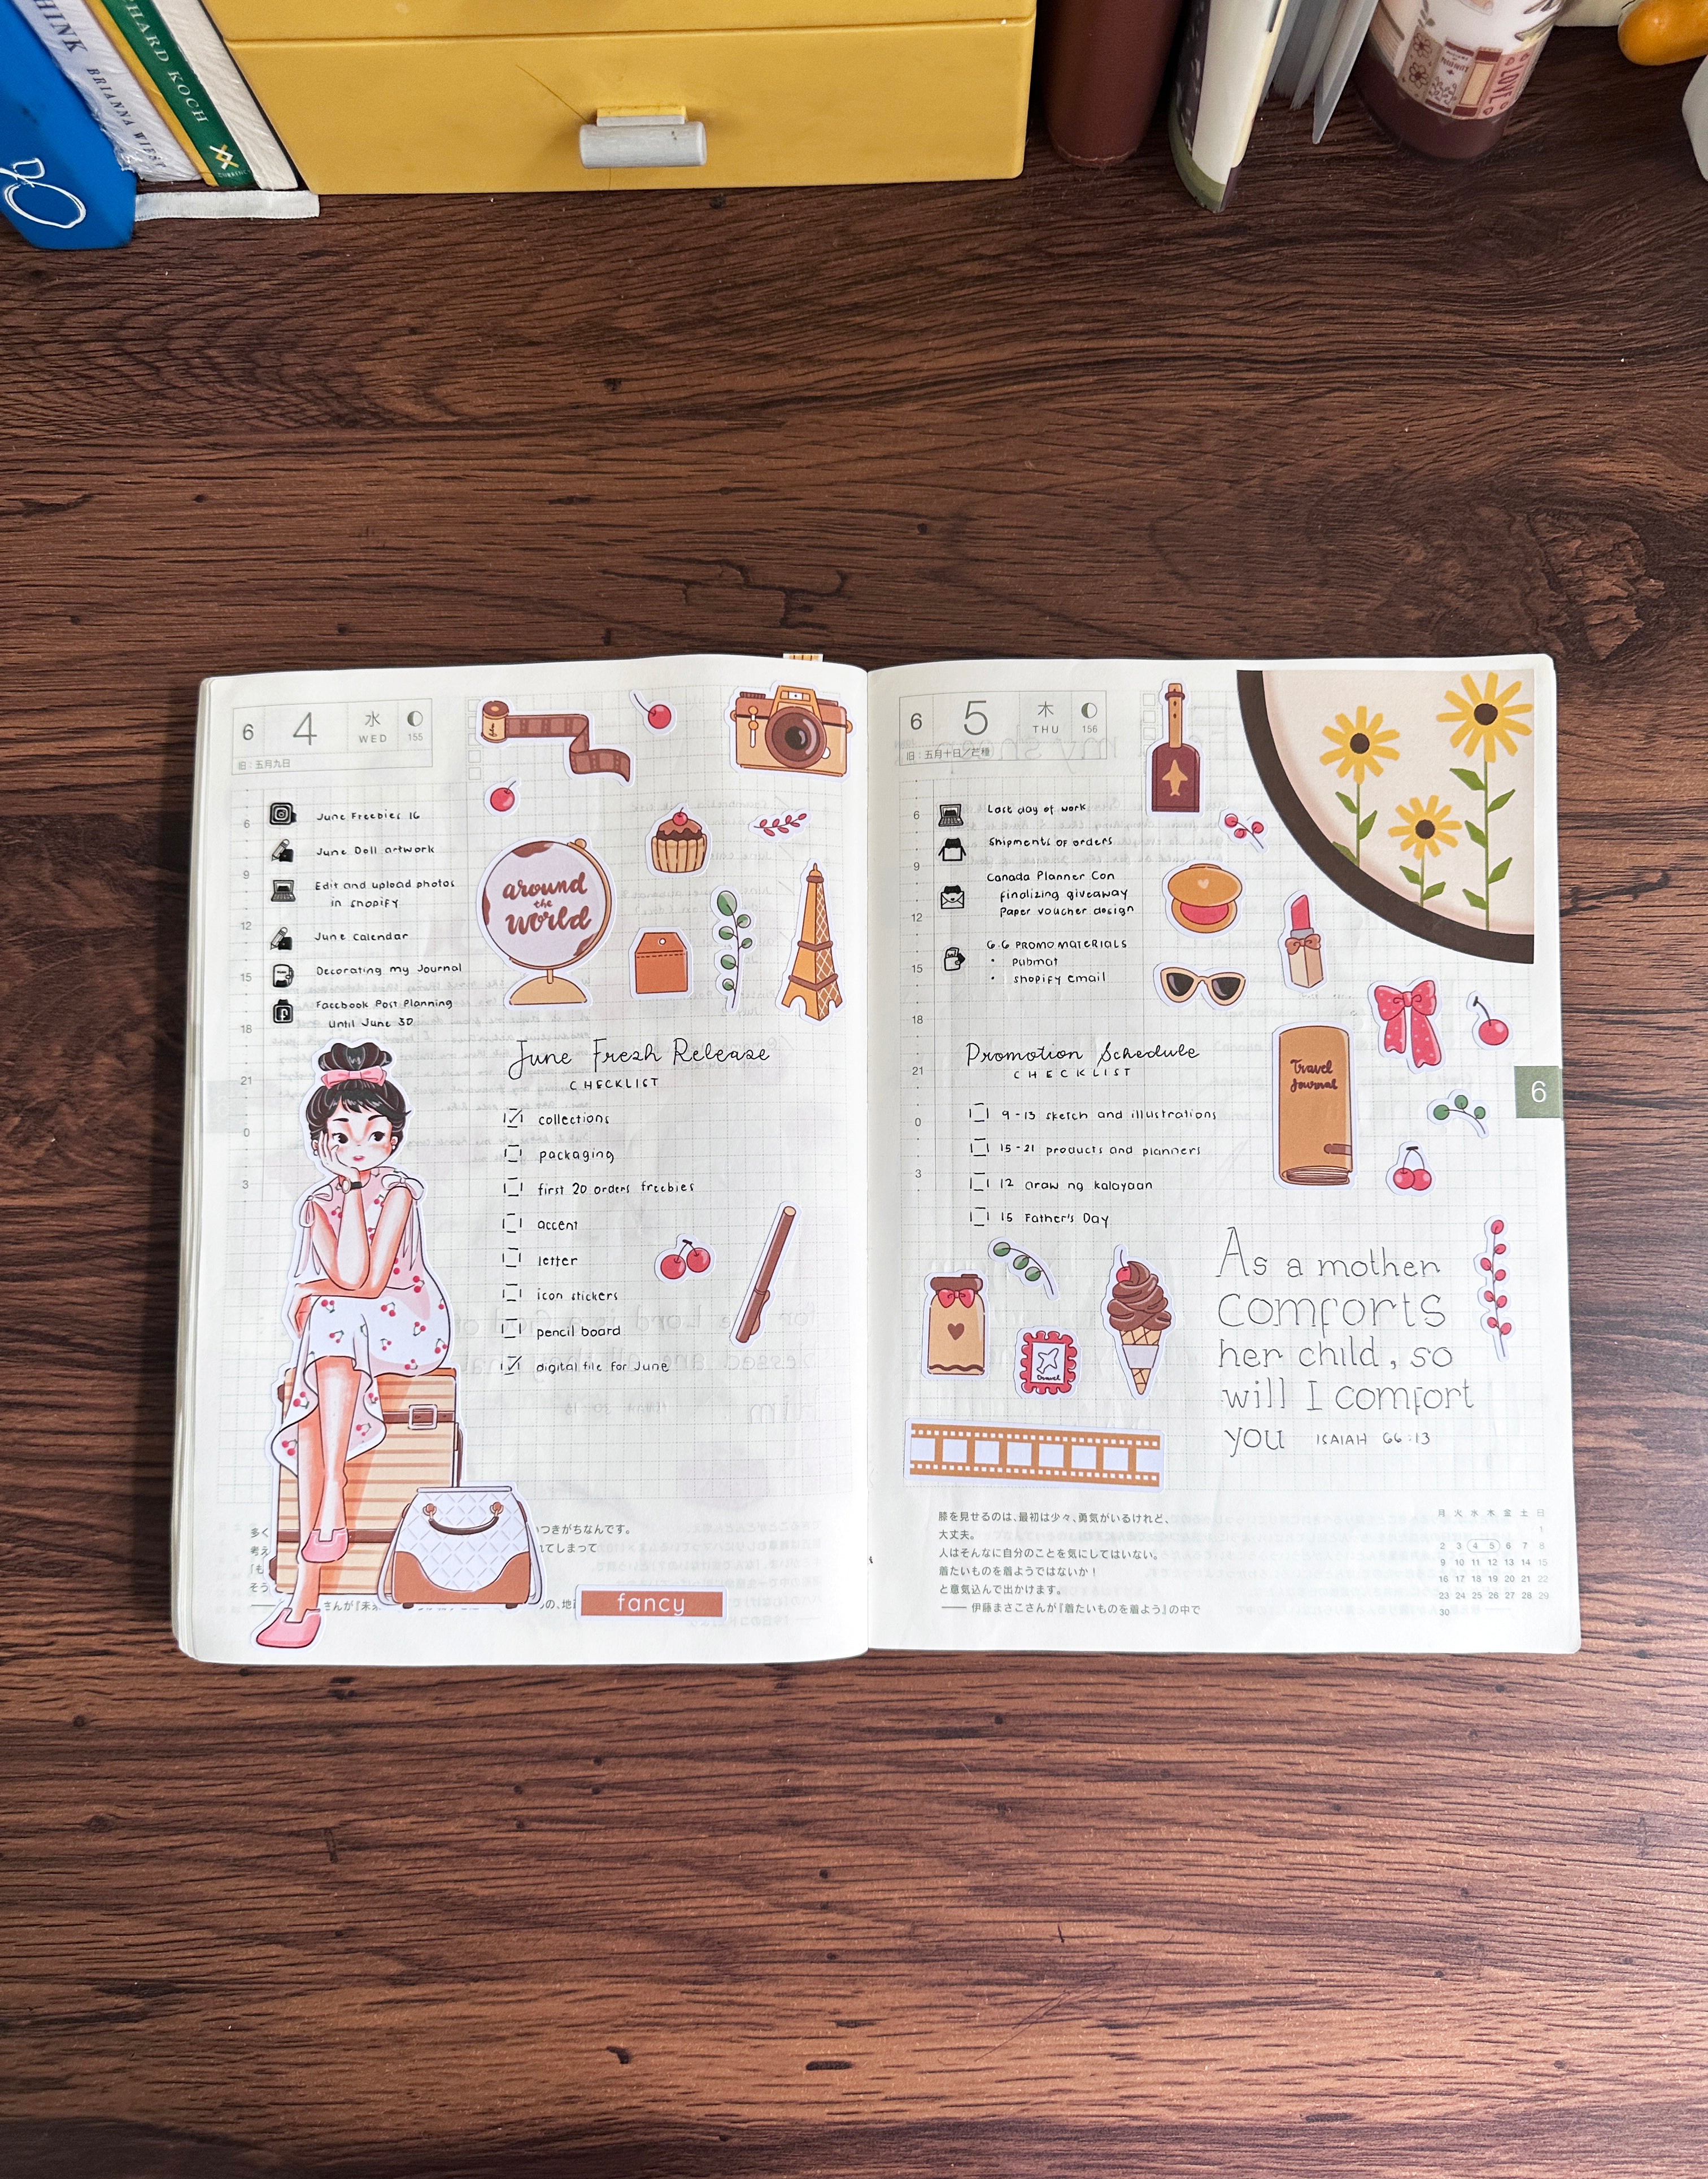 THINK
BRIANNA WIEST
RICHARD KOCH
CURRENCY
LOVE
6 4 水 WED 155
旧:五月九日
6
9
12
15
18
21
0
3
June Freebies 16
June Doll artwork
Edit and upload photos
in shopify
June Calendar
Decorating my Journal
Facebook Post Planning
Until June 30
around
the
world
June Fresh Release
CHECKLIST
collections
packaging
first 20 orders freebies
accent
letter
icon stickers
pencil board
digital file for June
多く
つきがちなんです。
考え
れてしまって
「も
そう
さんが『未来
の、地
fancy
6 5 木 THU 156
旧:五月十日/芒種
6
9
12
15
18
21
0
3
Last day of work
Shipments of orders
Canada Planner Con
finalizing giveaway
Paper voucher design
6.6 PROMO MATERIALS
• Pubmat
• shopify email
Travel
Journal
6
Promotion Schedule
CHECKLIST
9-13 sketch and illustrations
15-21 products and planners
12 araw ng kalayaan
15 Father's Day
travel
As a mother
comforts
her child, so
will I comfort
you ISAIAH 66:13
膝を見せるのは、最初は少々、勇気がいるけれど、
大丈夫。
人はそんなに自分のことを気にしてはいない。
着たいものを着ようではないか!
と意気込んで出かけます。
—— 伊藤まさこさんが『着たいものを着よう』の中で
月 火 水 木 金 土 日
1
2 3 4 5 6 7 8
9 10 11 12 13 14 15
16 17 18 19 20 21 22
23 24 25 26 27 28 29
30